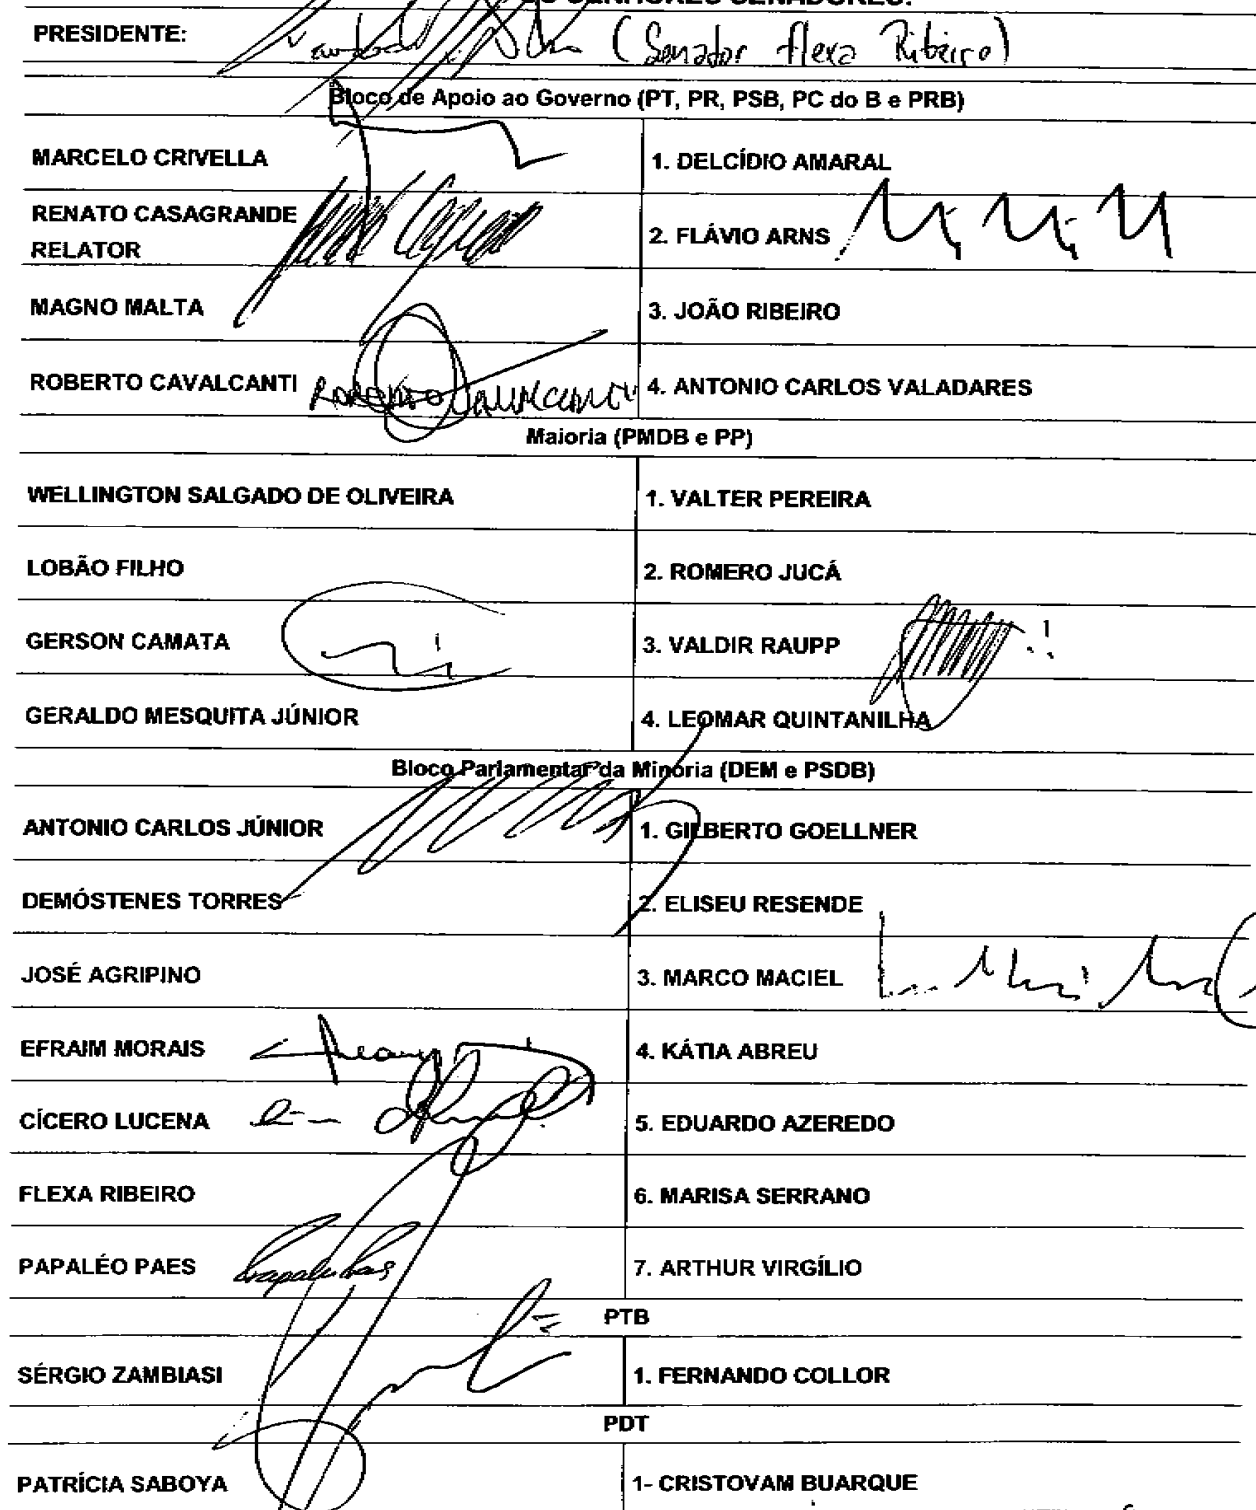 OS SENHORES SENADORES:
PRESIDENTE: (Senador Flexa Ribeiro)
Bloco de Apoio ao Governo (PT, PR, PSB, PC do B e PRB)
MARCELO CRIVELLA 1. DELCÍDIO AMARAL
RENATO CASAGRANDE
RELATOR 2. FLÁVIO ARNS
MAGNO MALTA 3. JOÃO RIBEIRO
ROBERTO CAVALCANTI Roberto Cavalcanti 4. ANTONIO CARLOS VALADARES
Maioria (PMDB e PP)
WELLINGTON SALGADO DE OLIVEIRA 1. VALTER PEREIRA
LOBÃO FILHO 2. ROMERO JUCÁ
GERSON CAMATA 3. VALDIR RAUPP
GERALDO MESQUITA JÚNIOR 4. LEOMAR QUINTANILHA
Bloco Parlamentar da Minoria (DEM e PSDB)
ANTONIO CARLOS JÚNIOR 1. GILBERTO GOELLNER
DEMÓSTENES TORRES 2. ELISEU RESENDE
JOSÉ AGRIPINO 3. MARCO MACIEL
EFRAIM MORAIS 4. KÁTIA ABREU
CÍCERO LUCENA 5. EDUARDO AZEREDO
FLEXA RIBEIRO 6. MARISA SERRANO
PAPALÉO PAES 7. ARTHUR VIRGÍLIO
PTB
SÉRGIO ZAMBIASI 1. FERNANDO COLLOR
PDT
PATRÍCIA SABOYA 1- CRISTOVAM BUARQUE